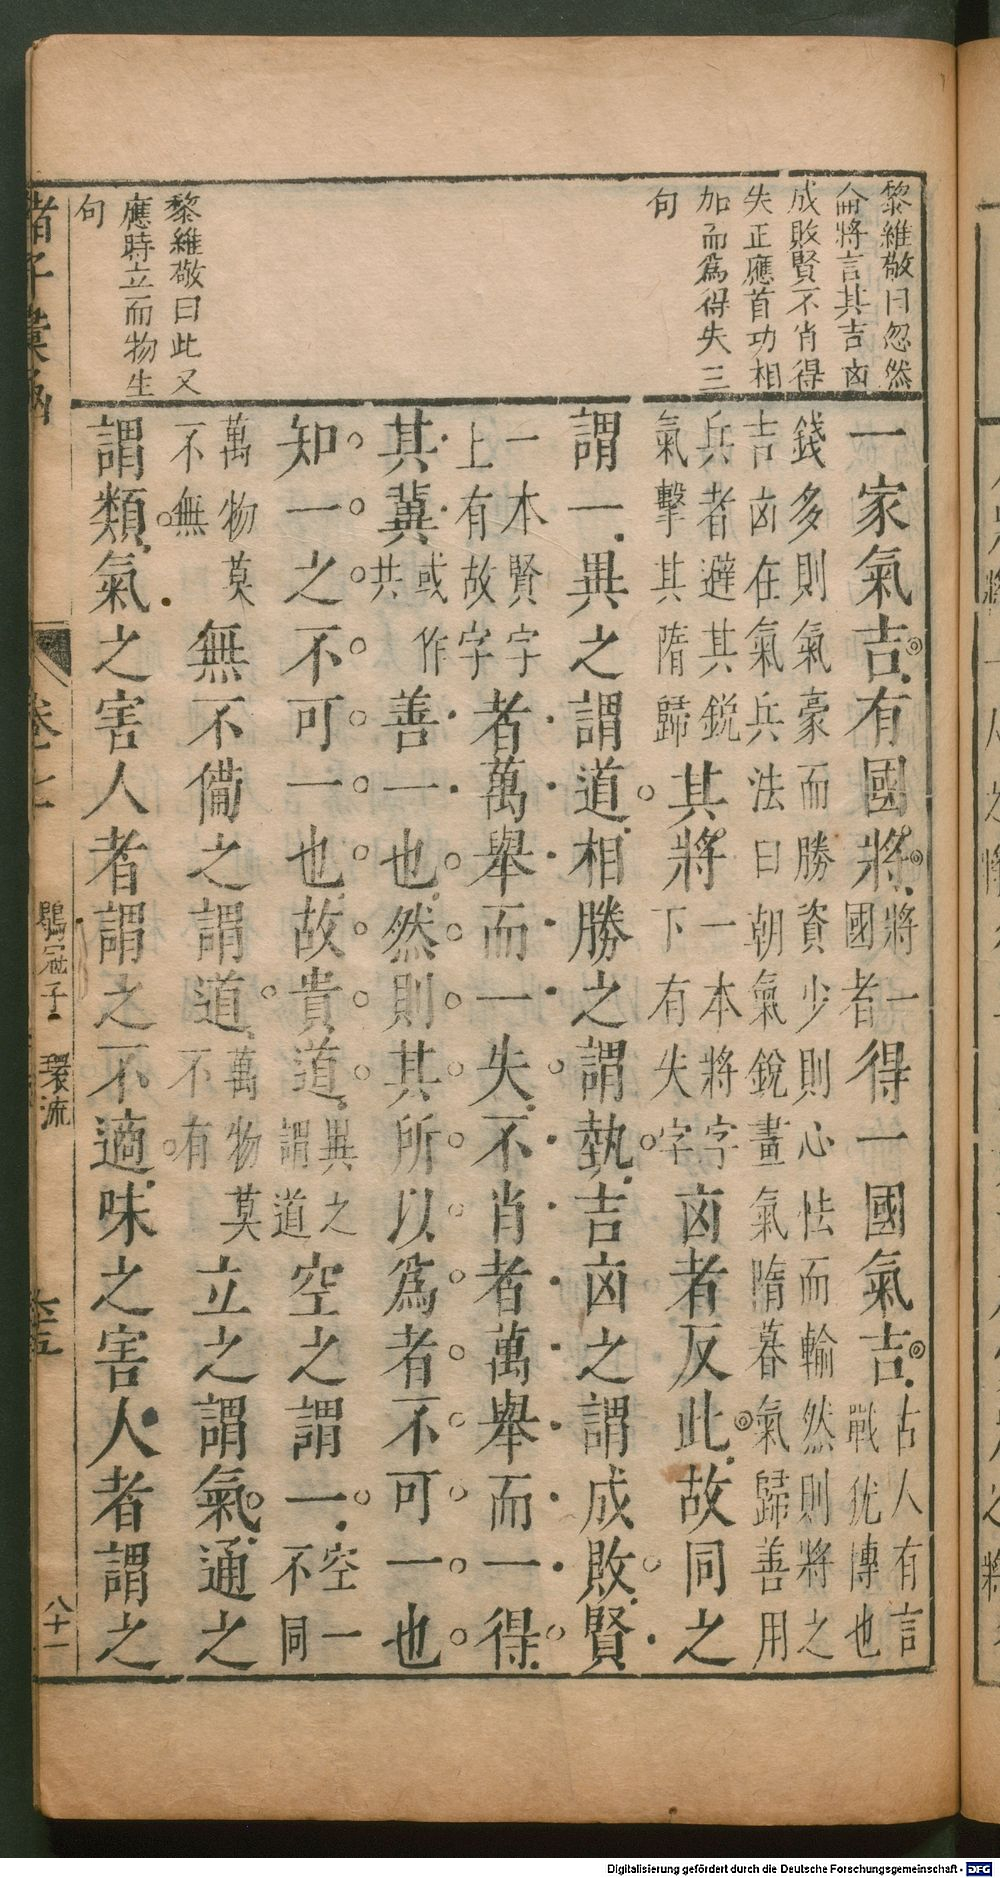 黎維敬曰忽然
侖將言其吉㐫
成敗賢不肖得
失正應首功相
加而爲得失三
句
黎維敬曰此又
應時立而物生
句
一家氣吉有國將將一國者得一國氣吉古人有言戰优博也
錢多則氣豪而勝資少則心怯而輸然則將之
吉㐫在氣兵法曰朝氣銳晝氣隋暮氣歸善用
兵者避其銳氣擊其隋歸其將一本將字下有失字㐫者反此故同之
謂一異之謂道相勝之謂埶吉㐫之謂成敗賢
一本賢字上有故字者萬舉而一失不肖者萬舉而一得
其冀或作共善一也然則其所以爲者不可一也
知一之不可一也故貴道異之謂道空之謂一空一不同
萬物莫不無無不備之謂道萬物莫不有立之謂氣通之
謂類氣之害人者謂之不適味之害人者謂之
諸子彙函
卷七
鶡冠子
環流
八十一
Digitalisierung gefördert durch die Deutsche Forschungsgemeinschaft - DFG